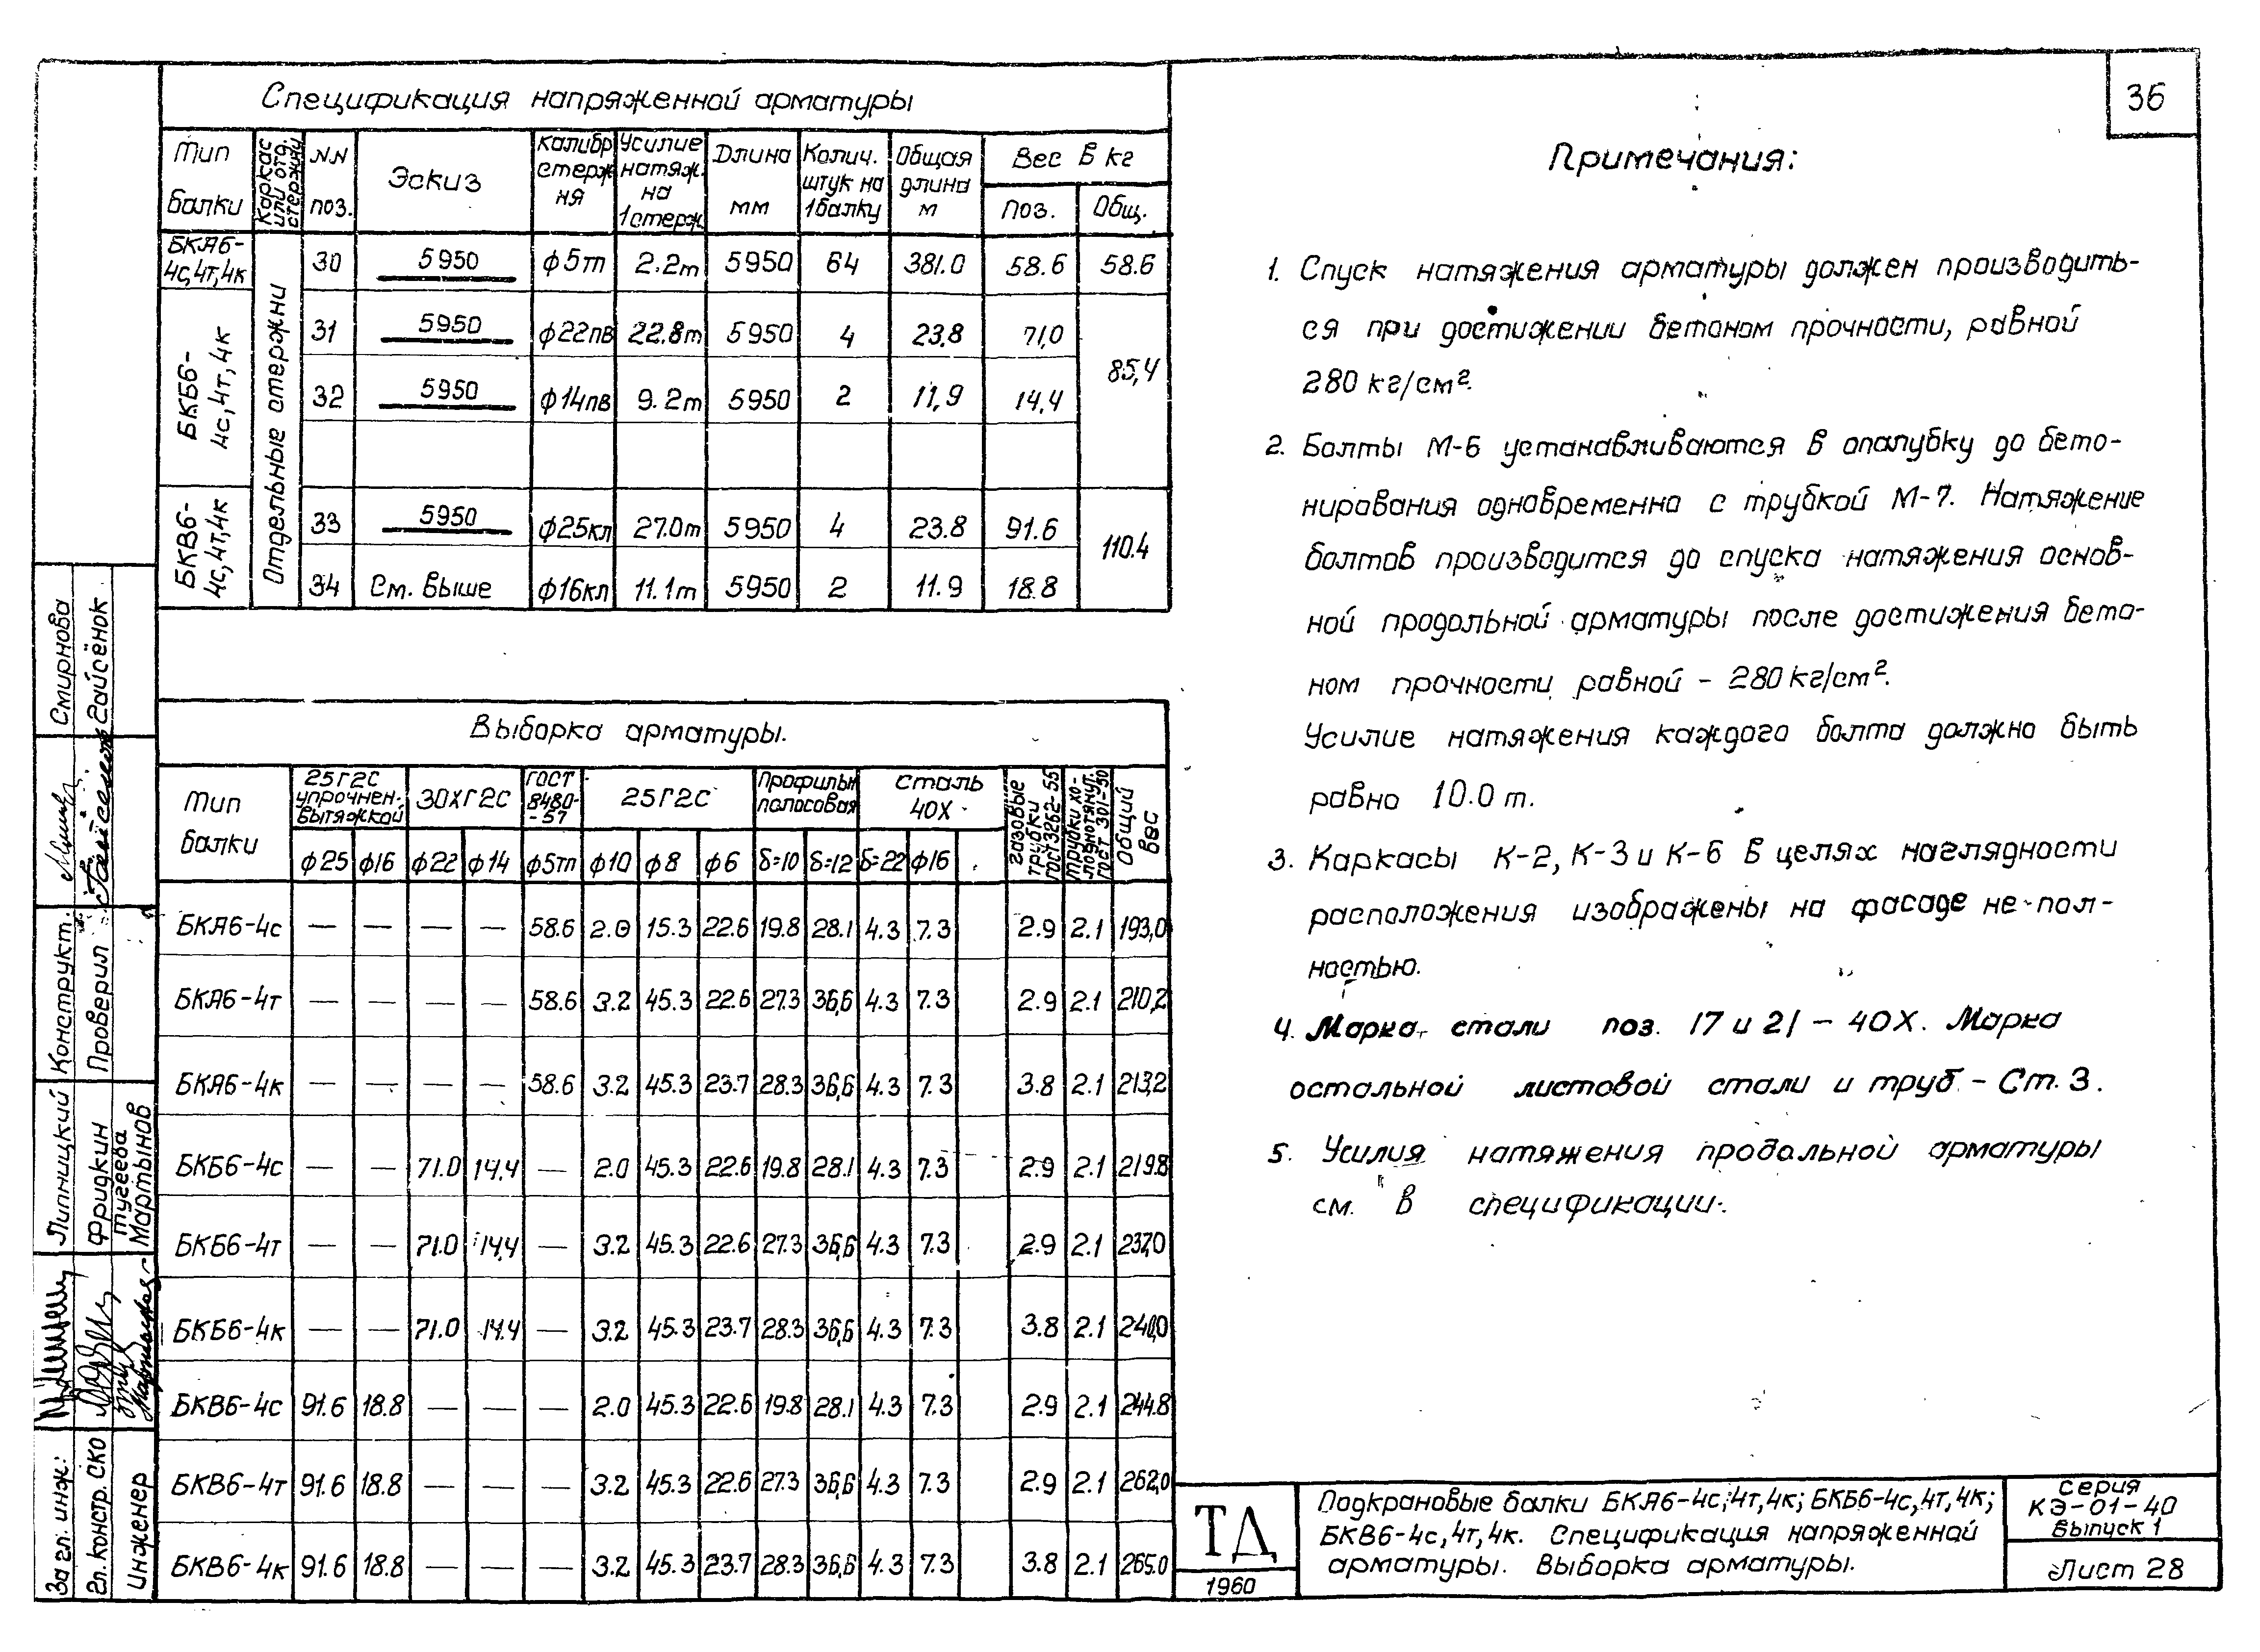 36
Спецификация напряженной арматуры
Тип балки | Каркас или отд. стержни | NN поз. | Эскиз | Калибр стержня | Усилие натяж. на 1стерж. | Длина мм | Колич. штук на 1балку | Общая длина м | Вес в кг
Поз. | Общ.
БКА6-4с,4т,4к | Отдельные стержни | 30 | 5950 | ф5тп | 2.2т | 5950 | 64 | 381.0 | 58.6 | 58.6
БКБ6-4с,4т,4к | 31 | 5950 | ф22пв | 22.8т | 5950 | 4 | 23,8 | 71,0 | 85,4
32 | 5950 | ф14пв | 9.2т | 5950 | 2 | 11,9 | 14,4
БКВ6-4с,4т,4к | 33 | 5950 | ф25кл | 27.0т | 5950 | 4 | 23.8 | 91.6 | 110.4
34 | См. выше | ф16кл | 11.1т | 5950 | 2 | 11.9 | 18.8
Выборка арматуры.
Тип балки | 25Г2С упрочнен. вытяжкой | 30ХГ2С | ГОСТ 8480-57 | 25Г2С | Профильн полосовая | Сталь 40Х | Газовые трубки ГОСТ3262-55 | Трубки холоднотянут. ГОСТ 301-50 | Общий вес
ф25 | ф16 | ф22 | ф14 | ф5тп | ф10 | ф8 | ф6 | δ=10 | δ=12 | δ=22 | ф16
БКА6-4с | — | — | — | — | 58.6 | 2.0 | 15.3 | 22.6 | 19.8 | 28.1 | 4.3 | 7.3 | 2.9 | 2.1 | 193,0
БКА6-4т | — | — | — | — | 58.6 | 3.2 | 45.3 | 22.6 | 27.3 | 36,6 | 4.3 | 7.3 | 2.9 | 2.1 | 210,2
БКА6-4к | — | — | — | — | 58.6 | 3.2 | 45.3 | 23.7 | 28.3 | 36,6 | 4.3 | 7.3 | 3.8 | 2.1 | 213,2
БКБ6-4с | — | — | 71.0 | 14,4 | — | 2.0 | 45.3 | 22.6 | 19.8 | 28.1 | 4.3 | 7.3 | 2.9 | 2.1 | 219.8
БКБ6-4т | — | — | 71.0 | 14,4 | — | 3.2 | 45.3 | 22.6 | 27.3 | 36,6 | 4.3 | 7.3 | 2.9 | 2.1 | 237,0
БКБ6-4к | — | — | 71.0 | 14.4 | — | 3.2 | 45.3 | 23.7 | 28.3 | 36,6 | 4.3 | 7.3 | 3.8 | 2.1 | 240,0
БКВ6-4с | 91.6 | 18.8 | — | — | — | 2.0 | 45.3 | 22.6 | 19.8 | 28.1 | 4.3 | 7.3 | 2.9 | 2.1 | 244.8
БКВ6-4т | 91.6 | 18.8 | — | — | — | 3.2 | 45.3 | 22.6 | 27.3 | 36,6 | 4.3 | 7.3 | 2.9 | 2.1 | 262,0
БКВ6-4к | 91.6 | 18.8 | — | — | — | 3.2 | 45.3 | 23.7 | 28.3 | 36,6 | 4.3 | 7.3 | 3.8 | 2.1 | 265.0
Примечания:
1. Спуск натяжения арматуры должен производить-
ся при достижении бетоном прочности, равной
280 кг/см².
2. Болты М-6 устанавливаются в опалубку до бето-
нирования одновременно с трубкой М-7. Натяжение
болтов производится до спуска натяжения основ-
ной продольной арматуры после достижения бето-
ном прочности равной - 280 кг/см².
Усилие натяжения каждого болта должно быть
равно 10.0 т.
3. Каркасы К-2, К-3 и К-6 в целях наглядности
расположения изображены на фасаде не пол-
ностью.
4. Марка стали поз. 17 и 21 - 40Х. Марка
остальной листовой стали и труб - Ст. 3.
5. Усилия натяжения продольной арматуры
см. в спецификации.
Смирнова
Гайсёнок
Конструкт.
Проверил
Липницкий
Фридкин
Тугеева
Мартынов
За гл. инж:
Гл. констр. СКО
Инженер
ТД
1960
Подкрановые балки БКА6-4с,4т,4к; БКБ6-4с,4т,4к;
БКВ6-4с,4т,4к. Спецификация напряженной
арматуры. Выборка арматуры.
Серия
КЭ-01-40
Выпуск 1
Лист 28